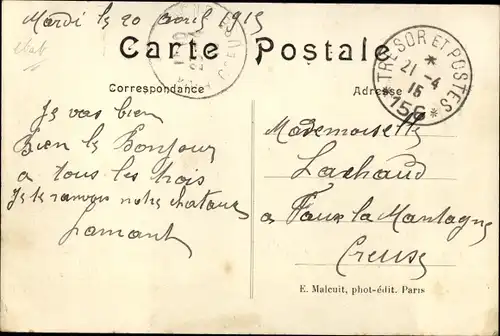 Mardi le 20 avril 1915
Carte Postale
Correspondance
Adresse
TRESOR ET POSTES
21 -4
15
* 156 *
Je vais bien
Bien le Bonjour
a tous les trois
Je te
notre chateau
Mademoiselle
Lachaud
a Faux la Montagne
Creuse
E. Malcuit, phot-édit. Paris